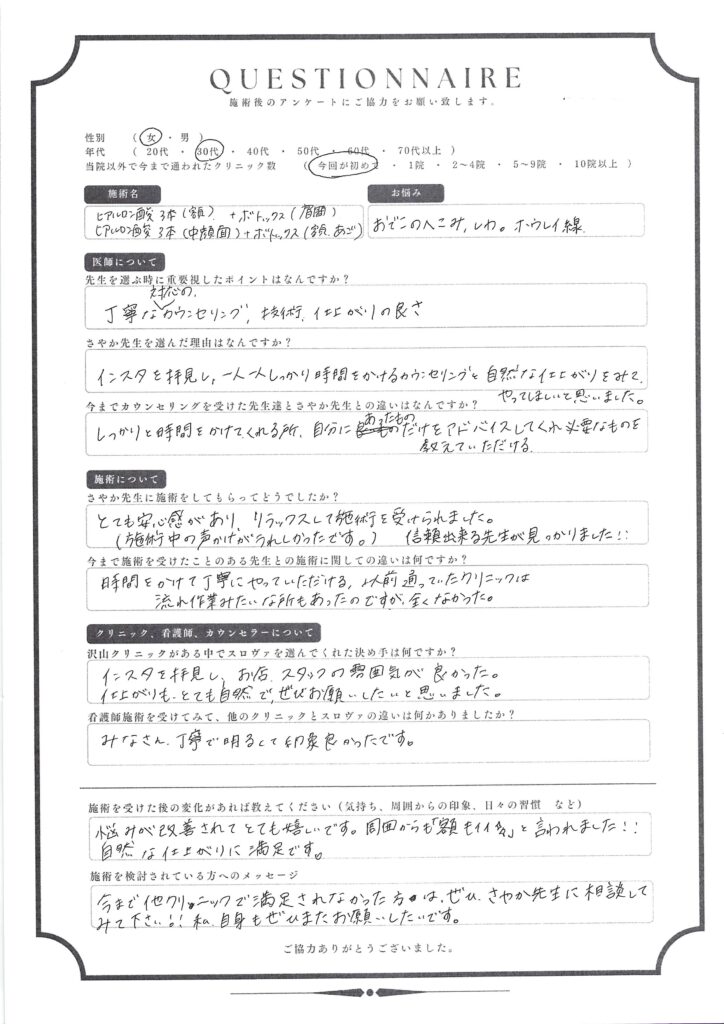 QUESTIONNAIRE
施術後のアンケートにご協力をお願い致します。
性別 ( 女 ・ 男 )
年代 ( 20代 ・ 30代 ・ 40代 ・ 50代 ・ 60代 ・ 70代以上 )
当院以外で今まで通われたクリニック数 ( 今回が初めて ・ 1院 ・ 2〜4院 ・ 5〜9院 ・ 10院以上 )
施術名
ヒアルロン酸 3本(額) + ボトックス(眉間)
ヒアルロン酸 3本(中顔面) + ボトックス(額、あご)
お悩み
おでこのへこみ、しわ。ホウレイ線
医師について
先生を選ぶ時に重要視したポイントはなんですか?
対応の、
丁寧なカウンセリング、技術、仕上がりの良さ
さやか先生を選んだ理由はなんですか?
インスタを拝見し、一人一人しっかり時間をかけるカウンセリングと自然な仕上がりをみて、
やってほしいと思いました。
今までカウンセリングを受けた先生達とさやか先生との違いはなんですか?
しっかりと時間をかけてくれる所、自分にあったものだけをアドバイスしてくれ必要なものを
教えていただける
施術について
さやか先生に施術をしてもらってどうでしたか?
とても安心感があり、リラックスして施術を受けられました。
(施術中の声かけがうれしかったです。) 信頼出来る先生が見つかりました!!
今まで施術を受けたことのある先生との施術に関しての違いは何ですか?
時間をかけて丁寧にやっていただける、以前通っていたクリニックは
流れ作業みたいな所もあったのですが、全くなかった。
クリニック、看護師、カウンセラーについて
沢山クリニックがある中でスロヴァを選んでくれた決め手は何ですか?
インスタを拝見し、お店、スタッフの雰囲気が良かった。
仕上がりも、とても自然で、ぜひお願いしたいと思いました。
看護師施術を受けてみて、他のクリニックとスロヴァの違いは何かありましたか?
みなさん、丁寧で明るくて印象良かったです。
施術を受けた後の変化があれば教えてください(気持ち、周囲からの印象、日々の習慣 など)
悩みが改善されてとても嬉しいです。周囲からも「額もイイネ」と言われました!!
自然な仕上がりに満足です。
施術を検討されている方へのメッセージ
今まで他クリニックで満足されなかった方は、ぜひ、さやか先生に相談して
みて下さい!! 私自身もぜひまたお願いしたいです。
ご協力ありがとうございました。